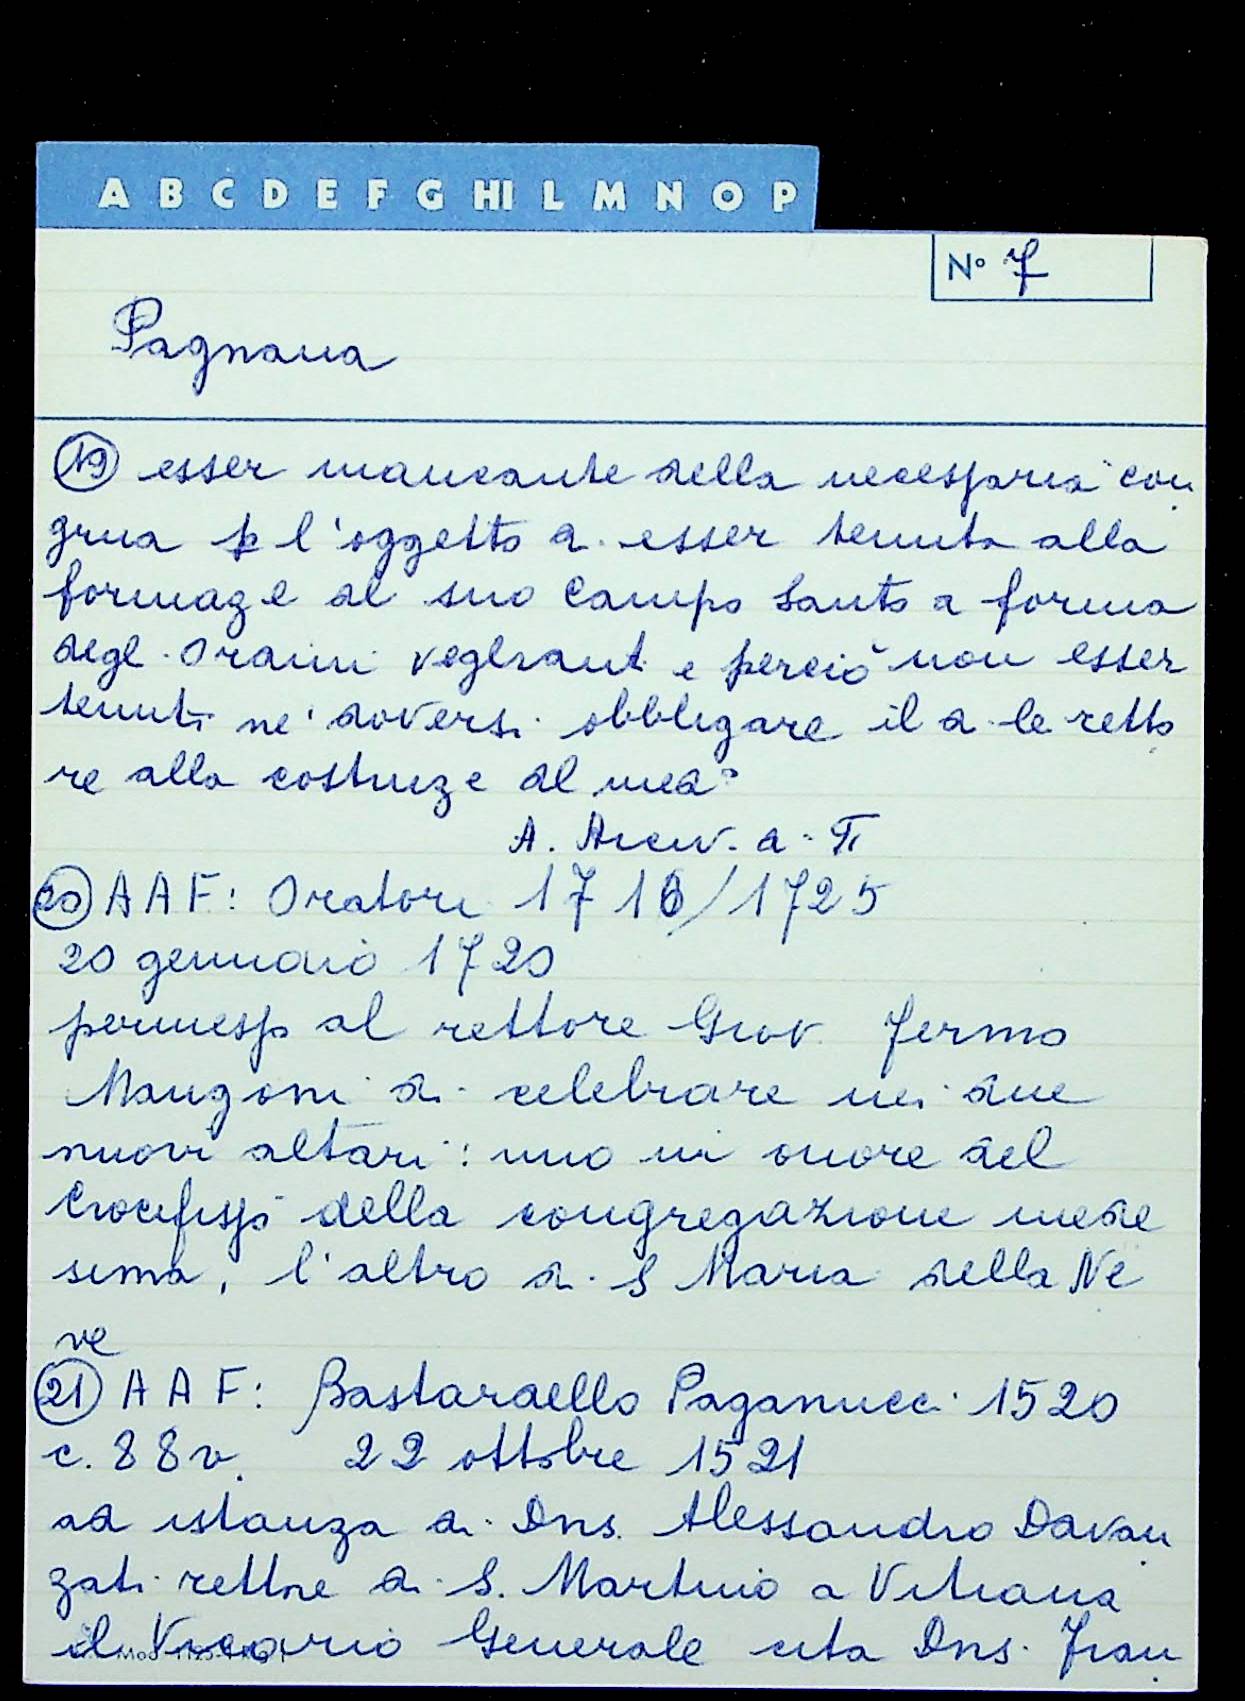 A B C D E F G HI L M N O P
N° 7
Pagnana
19 esser mancante della necessaria con
grua p l'oggetto di esser tenuta alla
formaz e del suo Campo Santo a forma
degl. Ordini veglianti e perciò non esser
tenuti ne' doversi obbligare il d. le retto
re alla costruz e del med°
A. Arciv. a. Π
20 AAF: Oratori 1716/1725
20 gennaio 1720
permesso al rettore Giov. Fermo
Mangoni di celebrare nei due
nuovi altari: uno in onore del
Crocifisso della congregazione mede
sima, l'altro di S Maria della Ne
ve
21 AAF: Bastardello Paganucci 1520
c. 88v. 22 ottobre 1521
ad istanza di Dns. Alessandro Davan
zati rettore di S. Martino a Vitiana
il Vicario Generale cita Dns. Fran